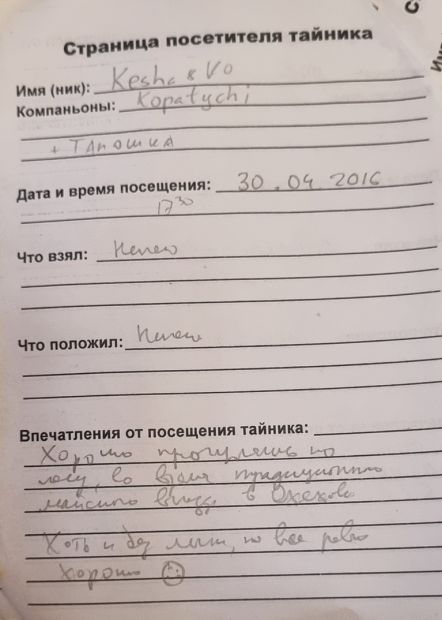 Страница посетителя тайника
Имя (ник): Kesha & Vo
Компаньоны: Kopatychi
+ Таношка
Дата и время посещения: 30.04.2016
17³⁰
Что взял: Ничего
Что положил: Ничего
Впечатления от посещения тайника:
Хорошо прогулялись по
лесу, во время традиционного
майского выезда в Орехово
Хоть и без лыж, но все равно
хорошо ☺